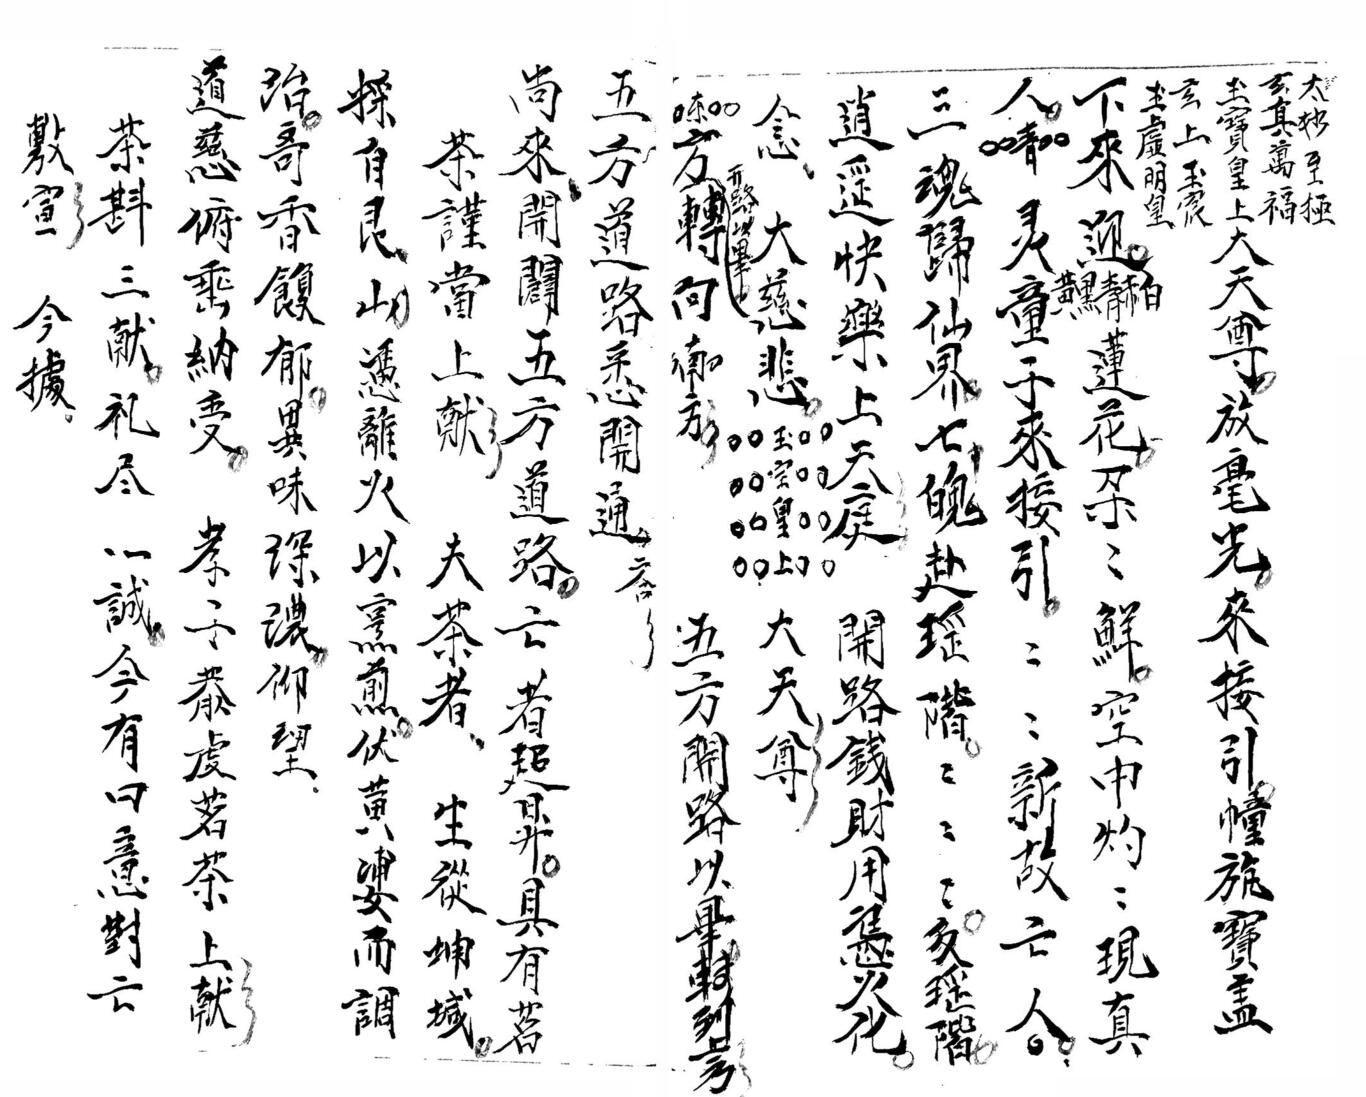 太妙至極
玄真萬福
玉寶皇上大天尊放毫光來接引幢旛寶盖
玄上玉宸
玉虛明皇
下來迎白赤青黑黃蓮花朶〻鮮空中灼〻現真
人青灵童子來接引〻〻新故亡人
三魂歸仙界七魄赴瑶階〻〻〻亥瑶階
逍遥快樂上天庭 開路錢財用憑火化
念 大慈悲 玉宝皇上 大天尊
東方轉向南方 五方開路以畢轉到亏
開路以畢
五方道路悉開通 二合
尚來開闢五方道路亡者超昇具有茗
茶謹當上献 夫茶者 生從坤域
採自艮山憑離火以烹煎伏黄婆而調
治奇香馥郁異味深濃仰望
道慈俯垂納受 孝子恭虔茗茶上献
茶斟三献礼尽一誠今有曰意對亡
敷宣 今據